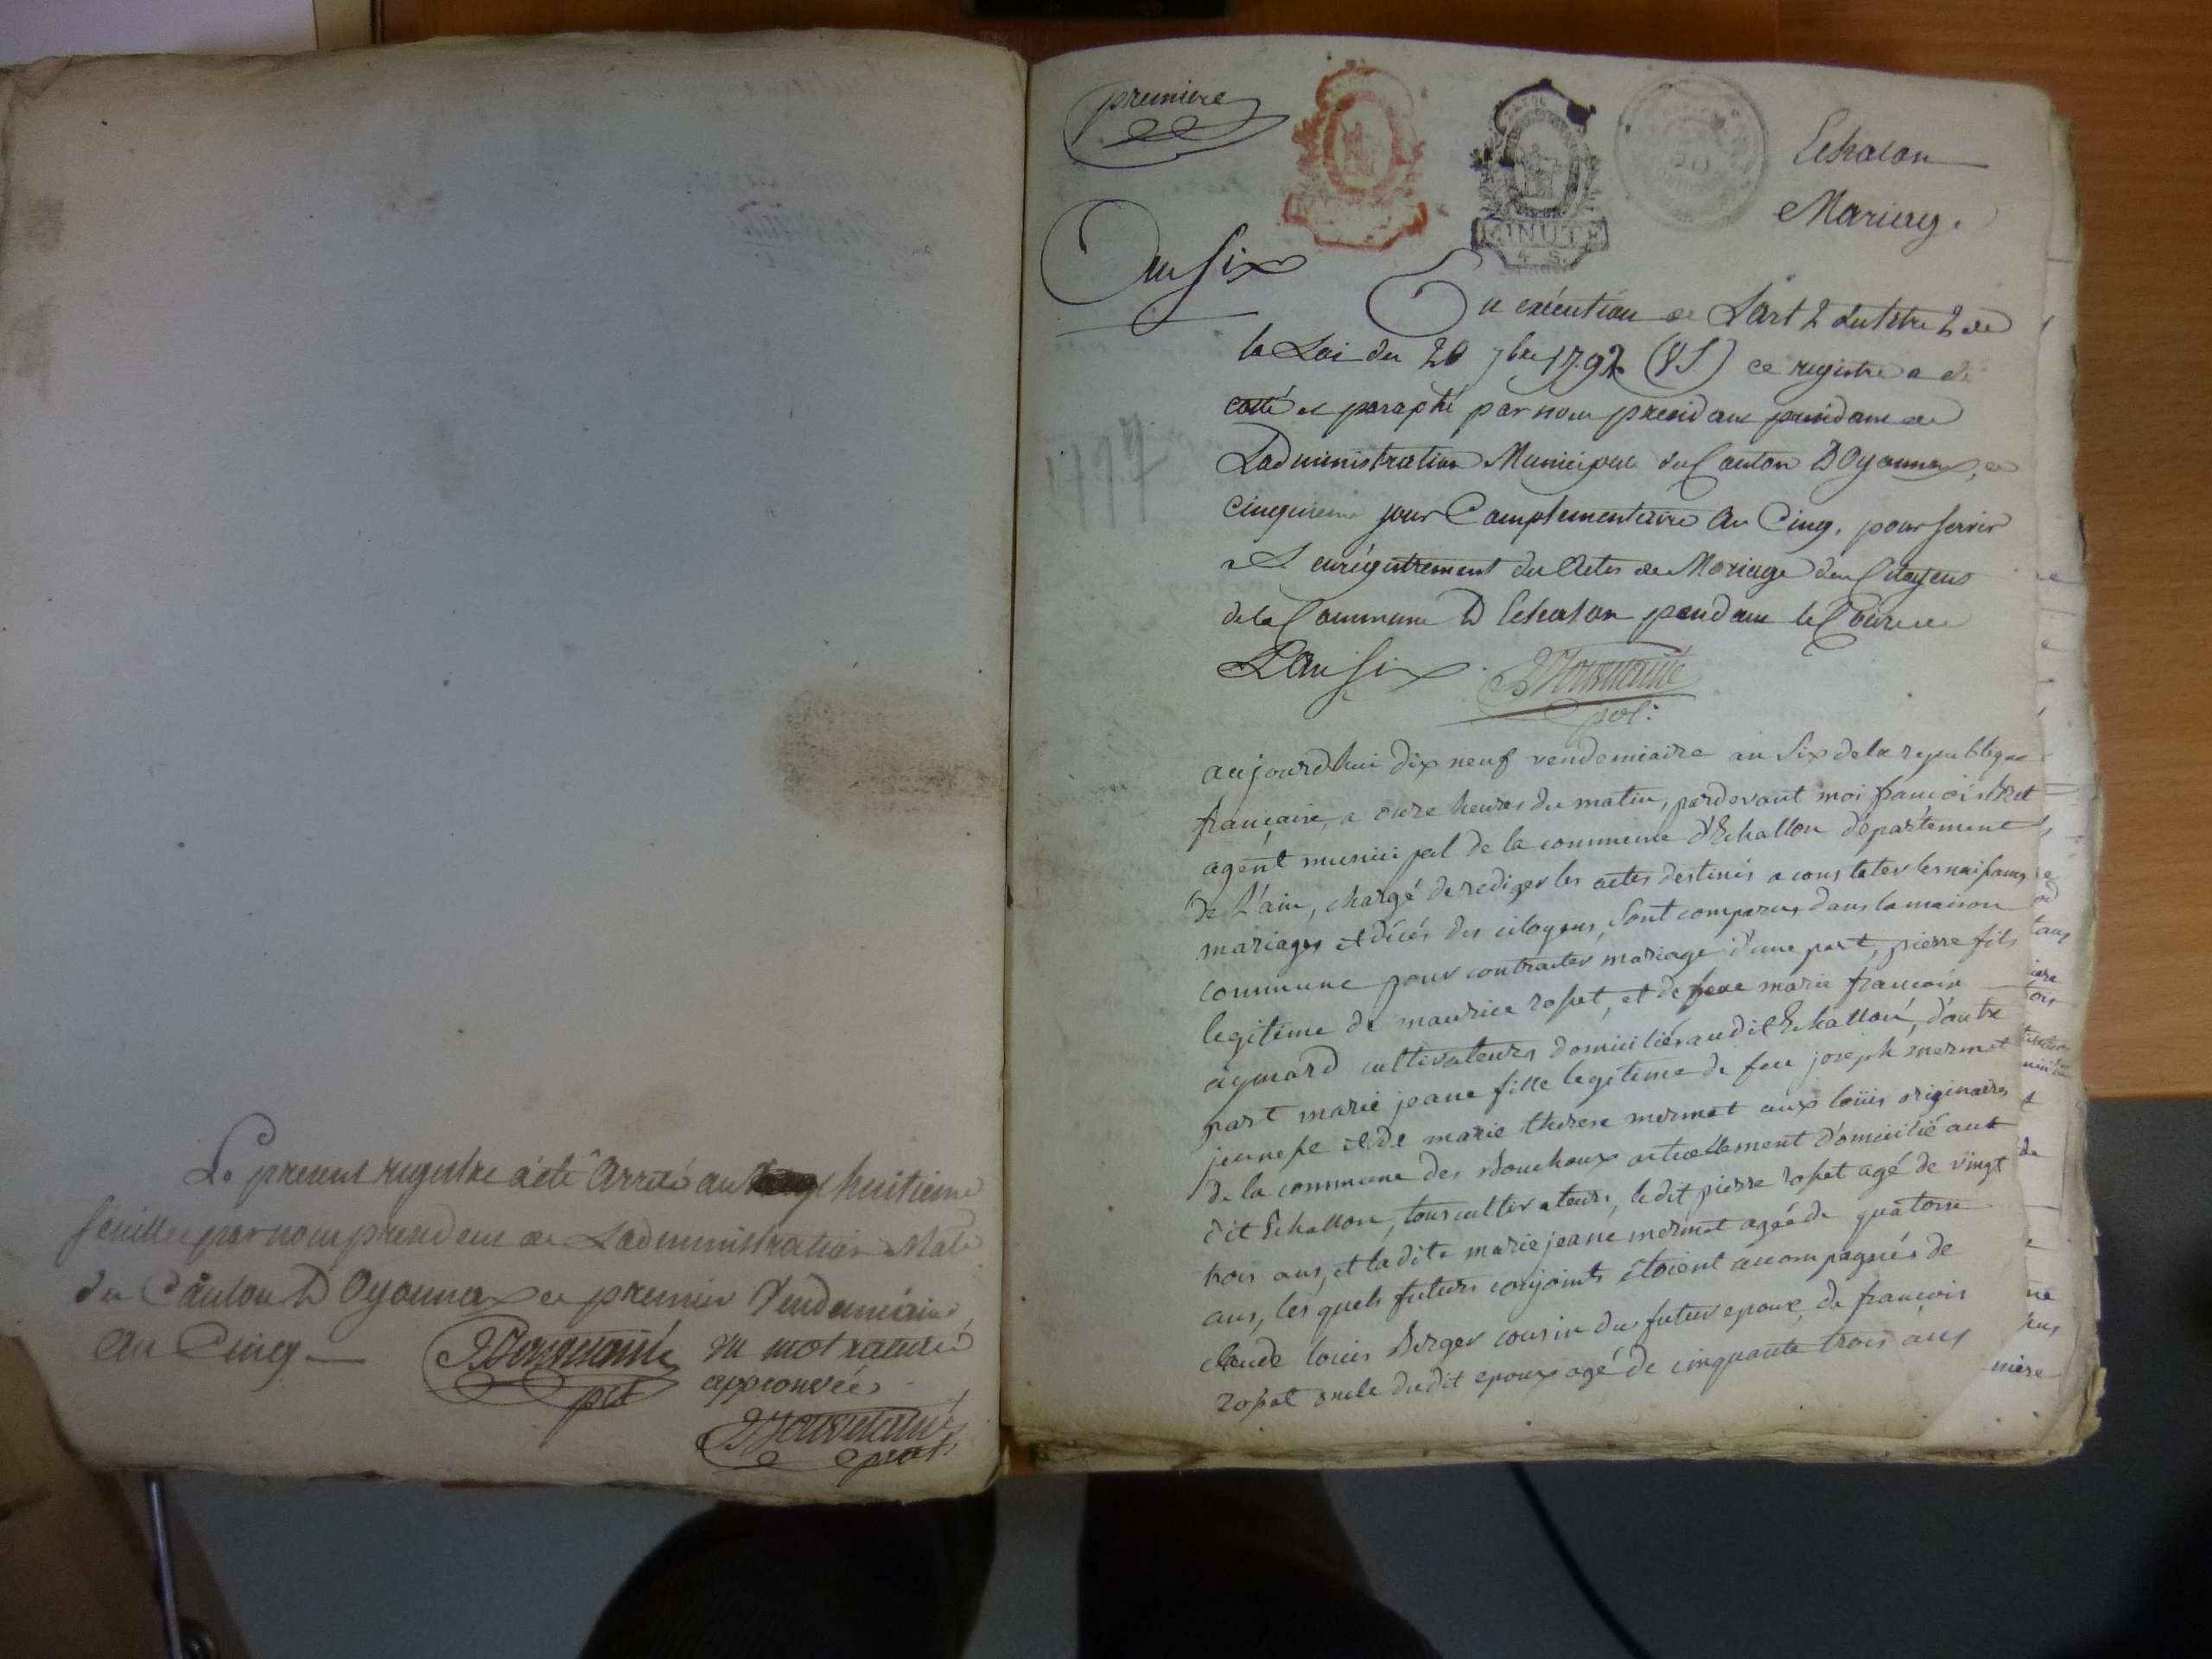 Le present registre a été Arreté au huitieme
feuillet par nous president de Ladministration Male
du Canton D Oyonnax ce premier Vendemiaire
An Cinq
un mot raturé
approuvée
premiere
MINUTE
4 S.
Echalon
Mariag.
An Six
En exécution de L'art 2 du titre 2 de
la Loi du 20 7bre 1792 (V S) ce registre a été
cotté et paraphé par nous president president de
Ladministration Municipale du Canton D Oyonnax, ce
cinquieme jour Complementaire An Cinq, pour servir
a L'enregistrement des Actes de Mariage des Citoyens
de la Commune D Echalon pendant le Cours de
L'An Six.
1797
aujourdhui dix neuf vendemiaire an Six de la republique
française, a onze heures du matin, pardevant moi francois
agent municipal de la commune d'Echallon departement
de L'ain, chargé de rediger les actes destinés a constater les naissances
mariages et décés des citoyens, Sont comparus dans la maison
commune pour contracter mariage d'une part, pierre fils
legitime de maurice rosset, et de feue marie francoise
aymard cultivateurs domiciliés audit Echallon, d'autre
part marie jeane fille legitime de feu joseph mermet
jeunesse et de marie therese mermet aux loüis originaires
de la commune des Bouchoux actuellement domicilié aut
dit Echallon, tous cultivateurs, le dit pierre rosset agé de vingt
trois ans, et ladite marie jeane mermet agée de quatorse
ans, les quels futurs conjoints étoient accompagnés de
claude loüis Berger cousin du futur epoux, de francois
rosset oncle dudit epoux agé de cinquante trois ans